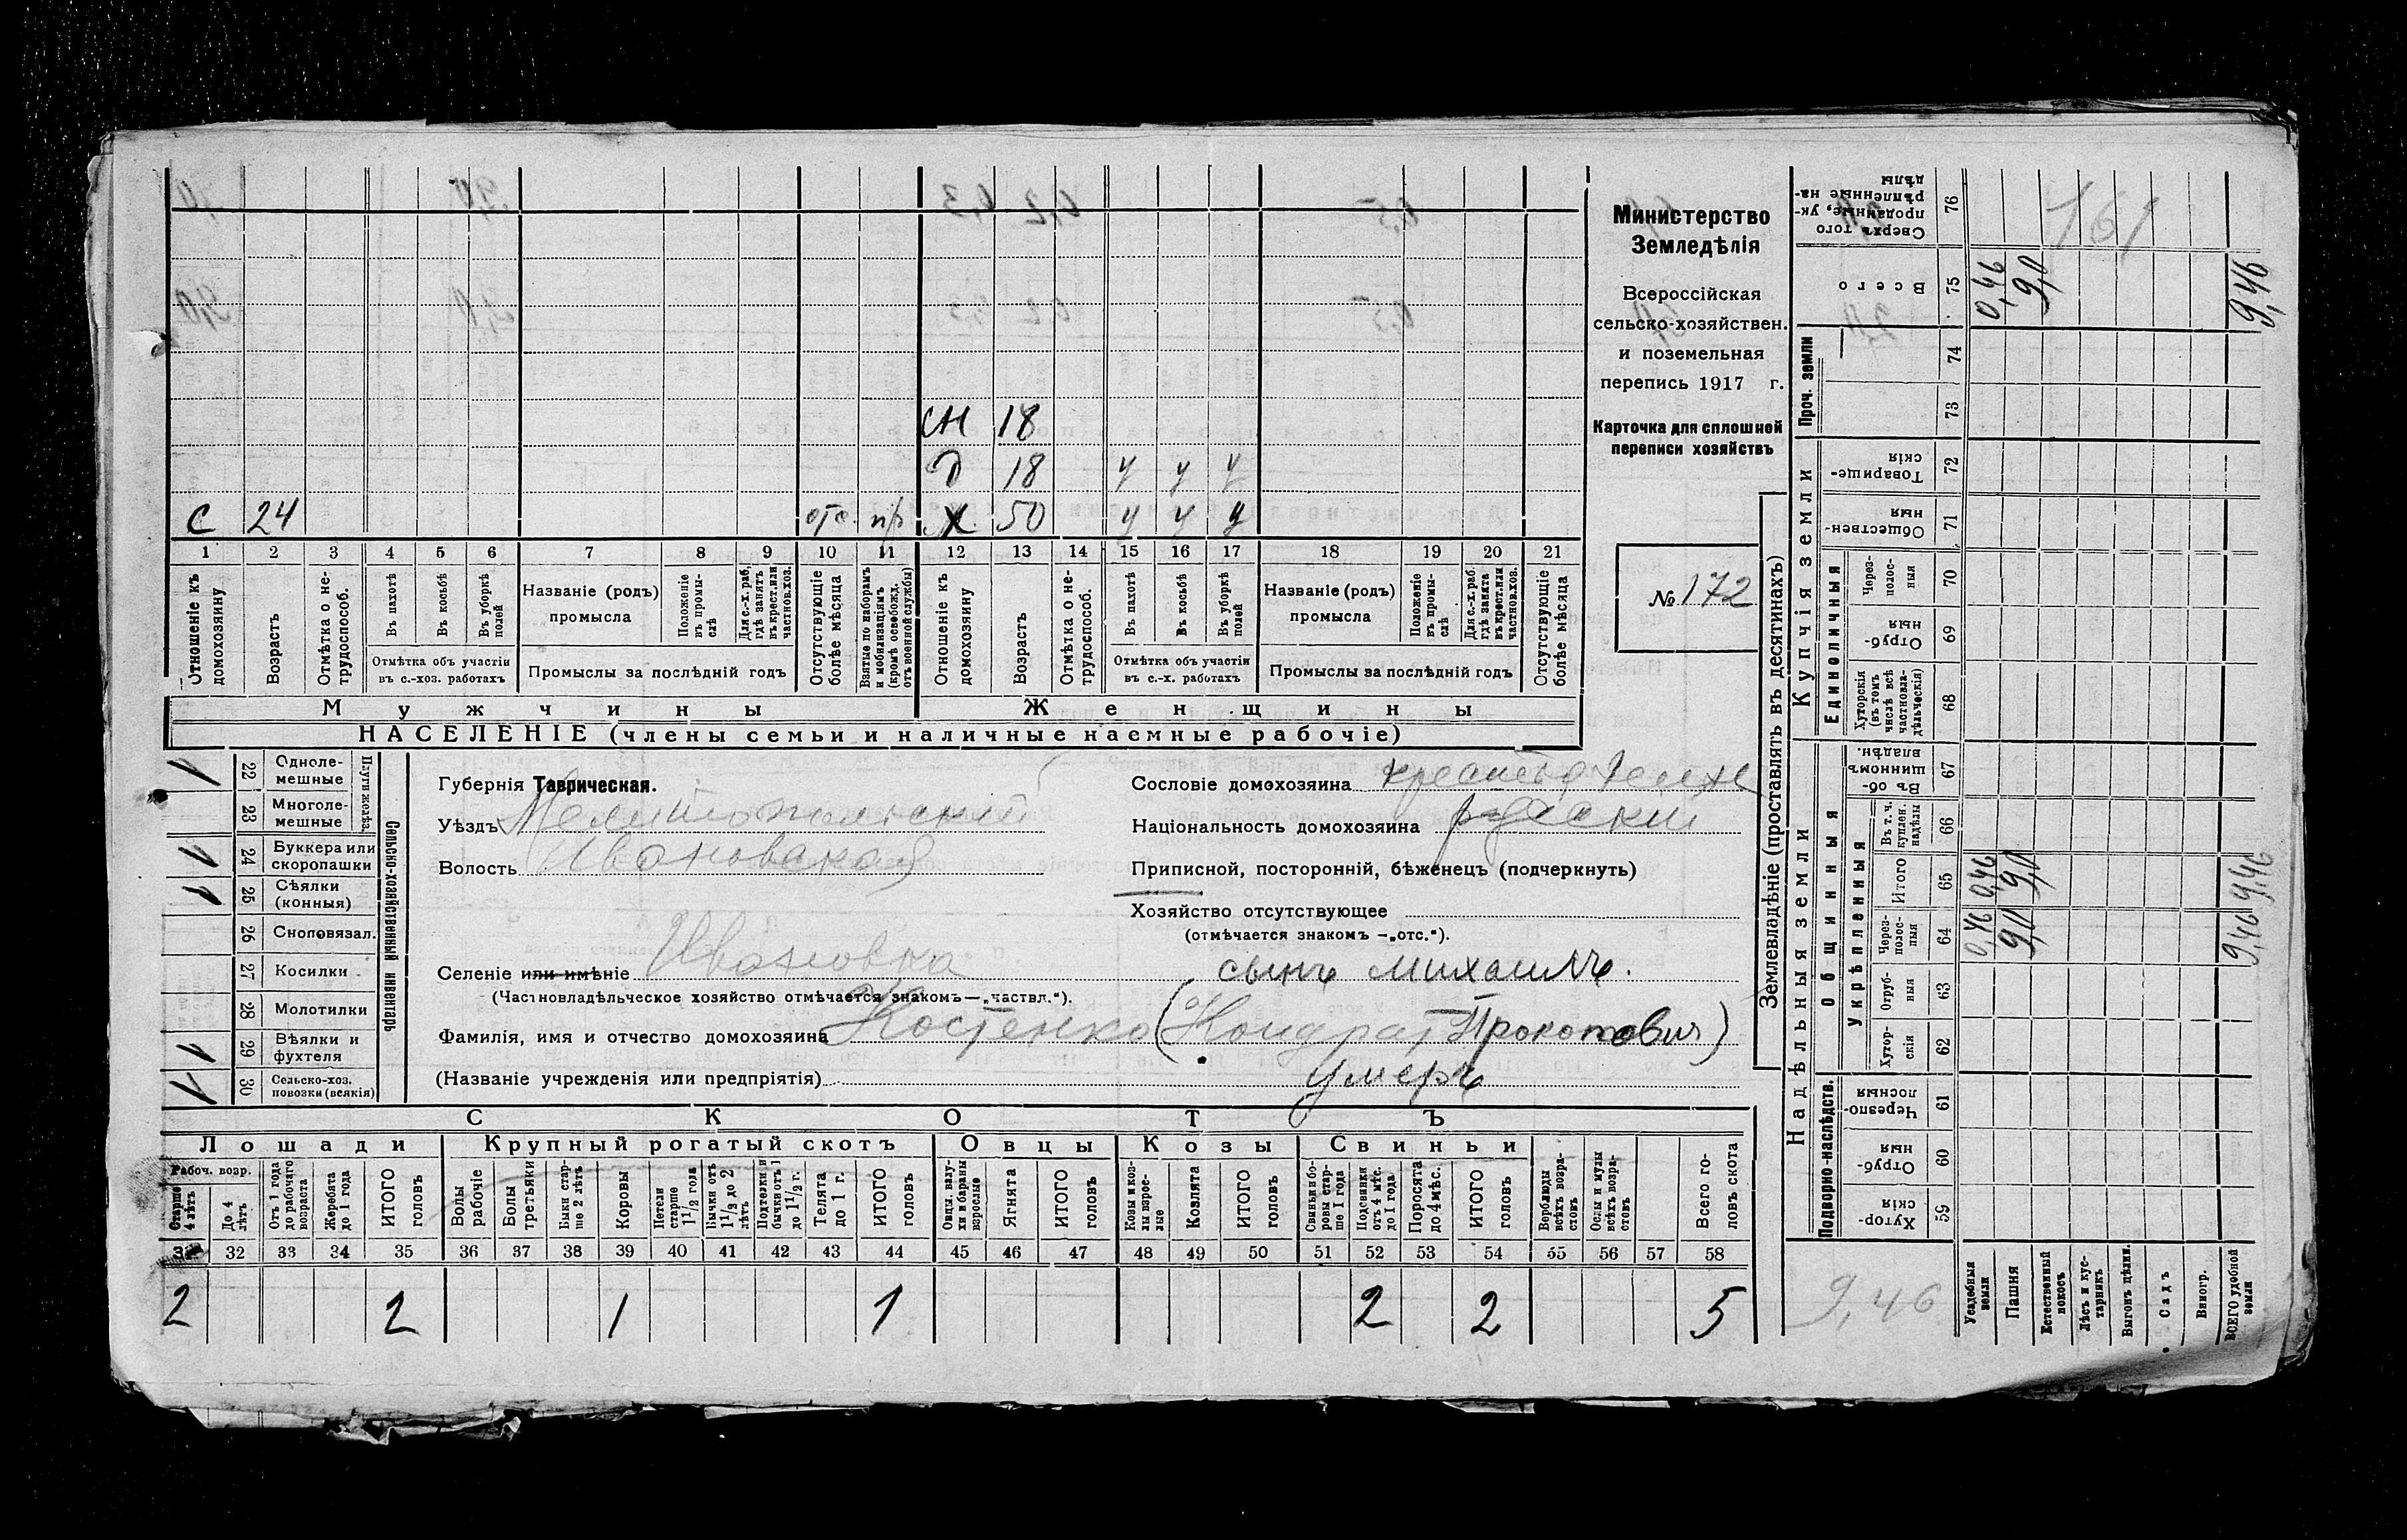 СН 18
Д 18 у у у
С 24 отс. пр Ж 50 у у у
1 2 3 4 5 6 7 8 9 10 11 12 13 14 15 16 17 18 19 20 21
Отношеніе къ домохозяину
Возрастъ
Отмѣтка о нетрудоспособ.
Въ пахотѣ
Въ косьбѣ
Въ уборкѣ полей
Отмѣтка объ участіи въ с.-хоз. работахъ
Названіе (родъ) промысла
Положеніе въ промыслѣ
Для с.-х. раб. гдѣ занятъ въ крест. или частнов. хоз.
Промыслы за послѣдній годъ
Отсутствующіе болѣе мѣсяца
Взятые по наборамъ и мобилизаціямъ (кромѣ освобожд. отъ военной службы)
Отношеніе къ домохозяину
Возрастъ
Отмѣтка о нетрудоспособ.
Въ пахотѣ
Въ косьбѣ
Въ уборкѣ полей
Отмѣтка объ участіи въ с.-х. работахъ
Названіе (родъ) промысла
Положеніе въ промыслѣ
Для с.-х. раб. гдѣ занята въ крест. или частнов. хоз.
Промыслы за послѣдній годъ
Отсутствующіе болѣе мѣсяца
Мужчины Женщины
НАСЕЛЕНІЕ (члены семьи и наличные наемные рабочіе)
Министерство
Земледѣлія
Всероссійская
сельско-хозяйствен.
и поземельная
перепись 1917 г.
Карточка для сплошной
переписи хозяйствъ
№ 172
Сельско-хозяйственный инвентарь
Плуги желѣз.
22 Одноле-мешные
23 Многоле-мешные
24 Буккера или скоропашки
25 Сѣялки (конныя)
26 Сноповязал.
27 Косилки
28 Молотилки
29 Вѣялки и фухтеля
30 Сельско-хоз. повозки (всякія)
Губернія Таврическая.
Уѣздъ Мелитопольский
Волость Ивановская
Селеніе или имѣніе Ивановка
(Частновладѣльческое хозяйство отмѣчается знакомъ—„частвл.“).
Фамилія, имя и отчество домохозяина Костенко (Кондрат Прокопович)
(Названіе учрежденія или предпріятія) умеръ
Сословіе домохозяина
Національность домохозяина русский
Приписной, посторонній, бѣженецъ (подчеркнуть)
Хозяйство отсутствующее
(отмѣчается знакомъ —„отс.“).
сынъ Михаилъ.
СКОТЪ
Лошади Крупный рогатый скотъ Овцы Козы Свиньи
Рабоч. возр.
Старше 4 лѣтъ
До 4 лѣтъ
Отъ 1 года до рабочаго возраста
Жеребята до 1 года
ИТОГО головъ
Волы рабочіе
Волы третьяки
Быки старше 2 лѣтъ
Коровы
Нетели старше 1 1/2 года
Бычки отъ 1 1/2 до 2 лѣтъ
Подтелки и бычки отъ 1 до 1 1/2 г.
Телята до 1 г.
ИТОГО головъ
Овцы, валухи и бараны взрослые
Ягнята
ИТОГО головъ
Козы и козлы взрослые
Козлята
ИТОГО головъ
Свиньи и боровы старше 1 года
Подсвинки отъ 4 мѣс. до 1 года
Поросята до 4 мѣс.
ИТОГО головъ
Верблюды всѣхъ возрастовъ
Ослы и мулы всѣхъ возрастовъ
Всего головъ скота
32 33 34 35 36 37 38 39 40 41 42 43 44 45 46 47 48 49 50 51 52 53 54 55 56 57 58
2 2 1 1 2 2 5
Землевладѣніе (проставлять въ десятинахъ)
Надѣльныя земли Купчія земли Проч. земли
Подворно-наслѣдств. Общинныя Единоличныя
Укрѣпленныя
Сверхъ того проданные, укрѣпленные надѣлы 76 161
Всего 75 0,46 9,0 9,46
74
73
Товарищескія 72
Общественныя 71
Через-полосныя 70
Отрубныя 69
Хуторскія (въ томъ числѣ всѣ частновладѣльческія) 68
Въ общинномъ владѣн. 67
Въ т. ч. куплен. надѣлы 66
Итого 65 0,46 9,0 9,46
Через-полосныя 64 0,46 9,0 9,46
Отрубныя 63
Хуторскія 62
Черезпо-лосныя 61
Отрубныя 60
Хуторскія 59
9,46
Усадебныя земли
Пашня
Естественный покосъ
Лѣсъ и кустарникъ
Выгонъ цѣлин.
Садъ
Виногр.
ВСЕГО удобной земли